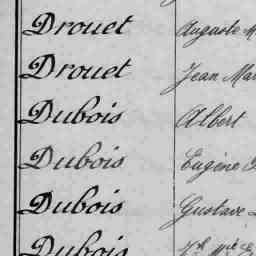 Drouet Auguste M
Drouet Jean Mar
Dubois Albert
Dubois Eugène
Dubois Gustave
Dubois